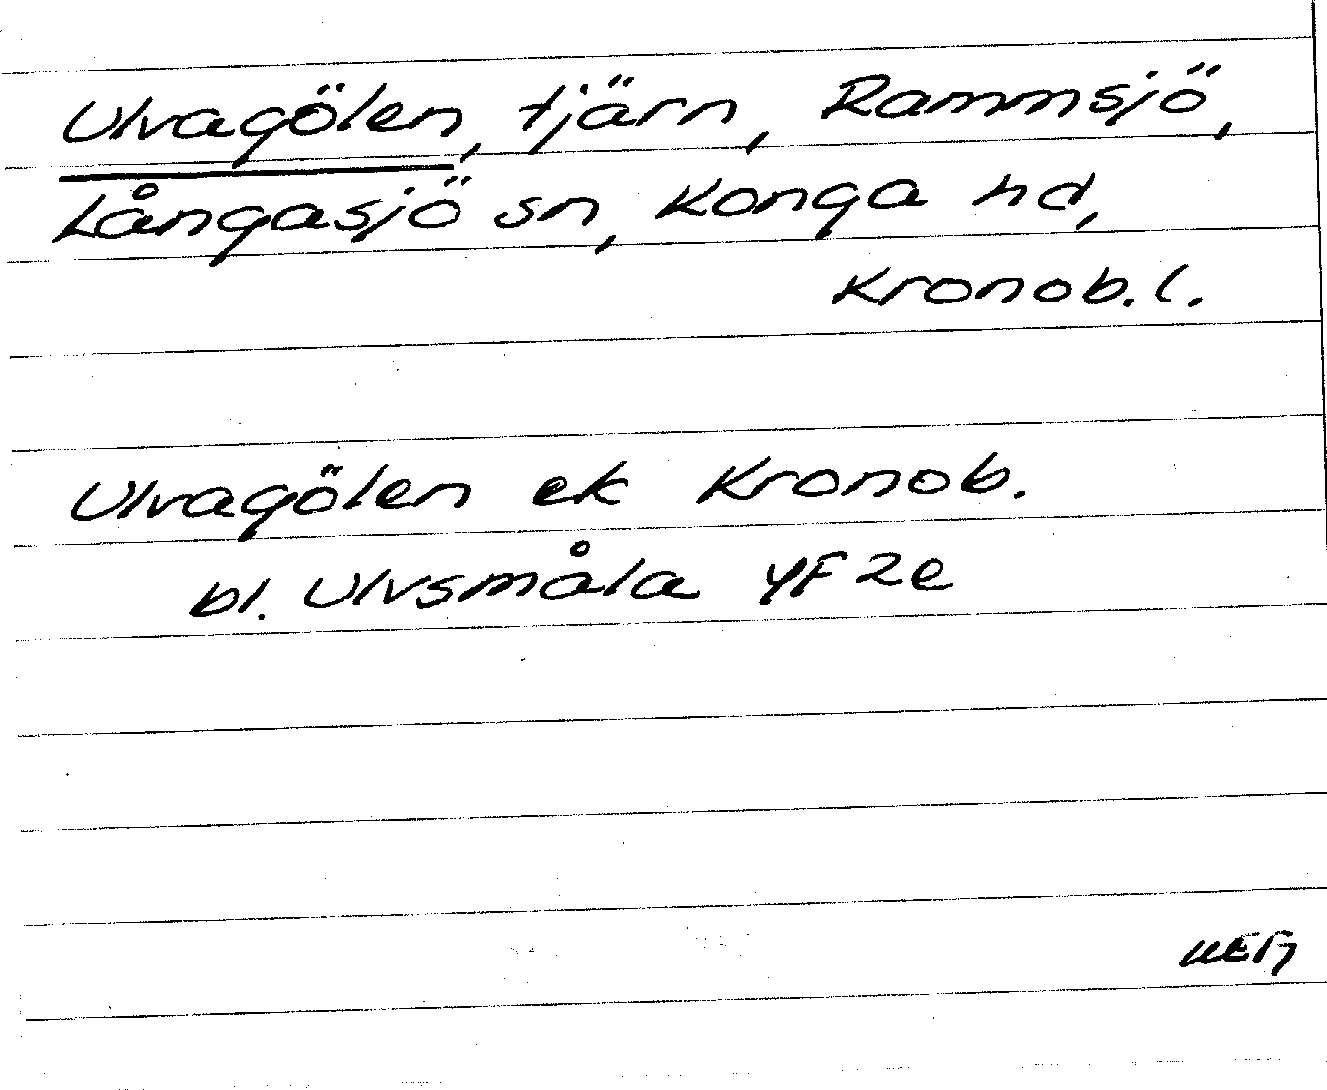 Ulvagölen, tjärn, Rammsjö,
Långasjö sn, Konga hd,
Kronob. l.
Ulvagölen ek Kronob.
bl. Ulvsmåla 4F 2e